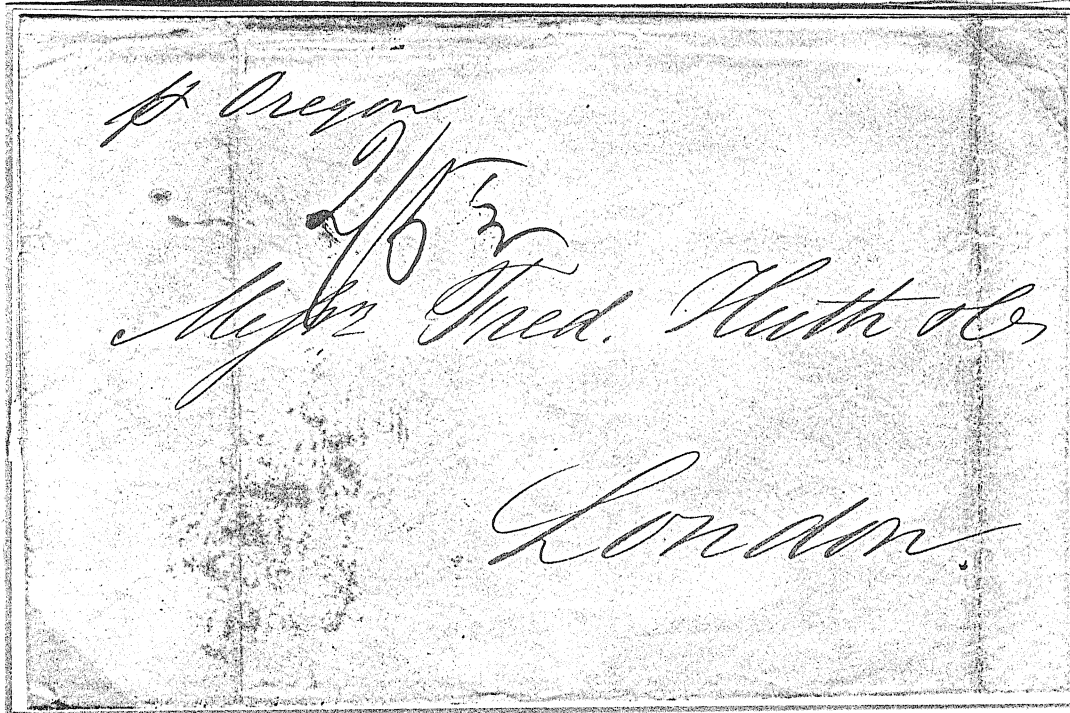 pr Oregon
2/5
Messrs Fred. Huth & Co,
London.